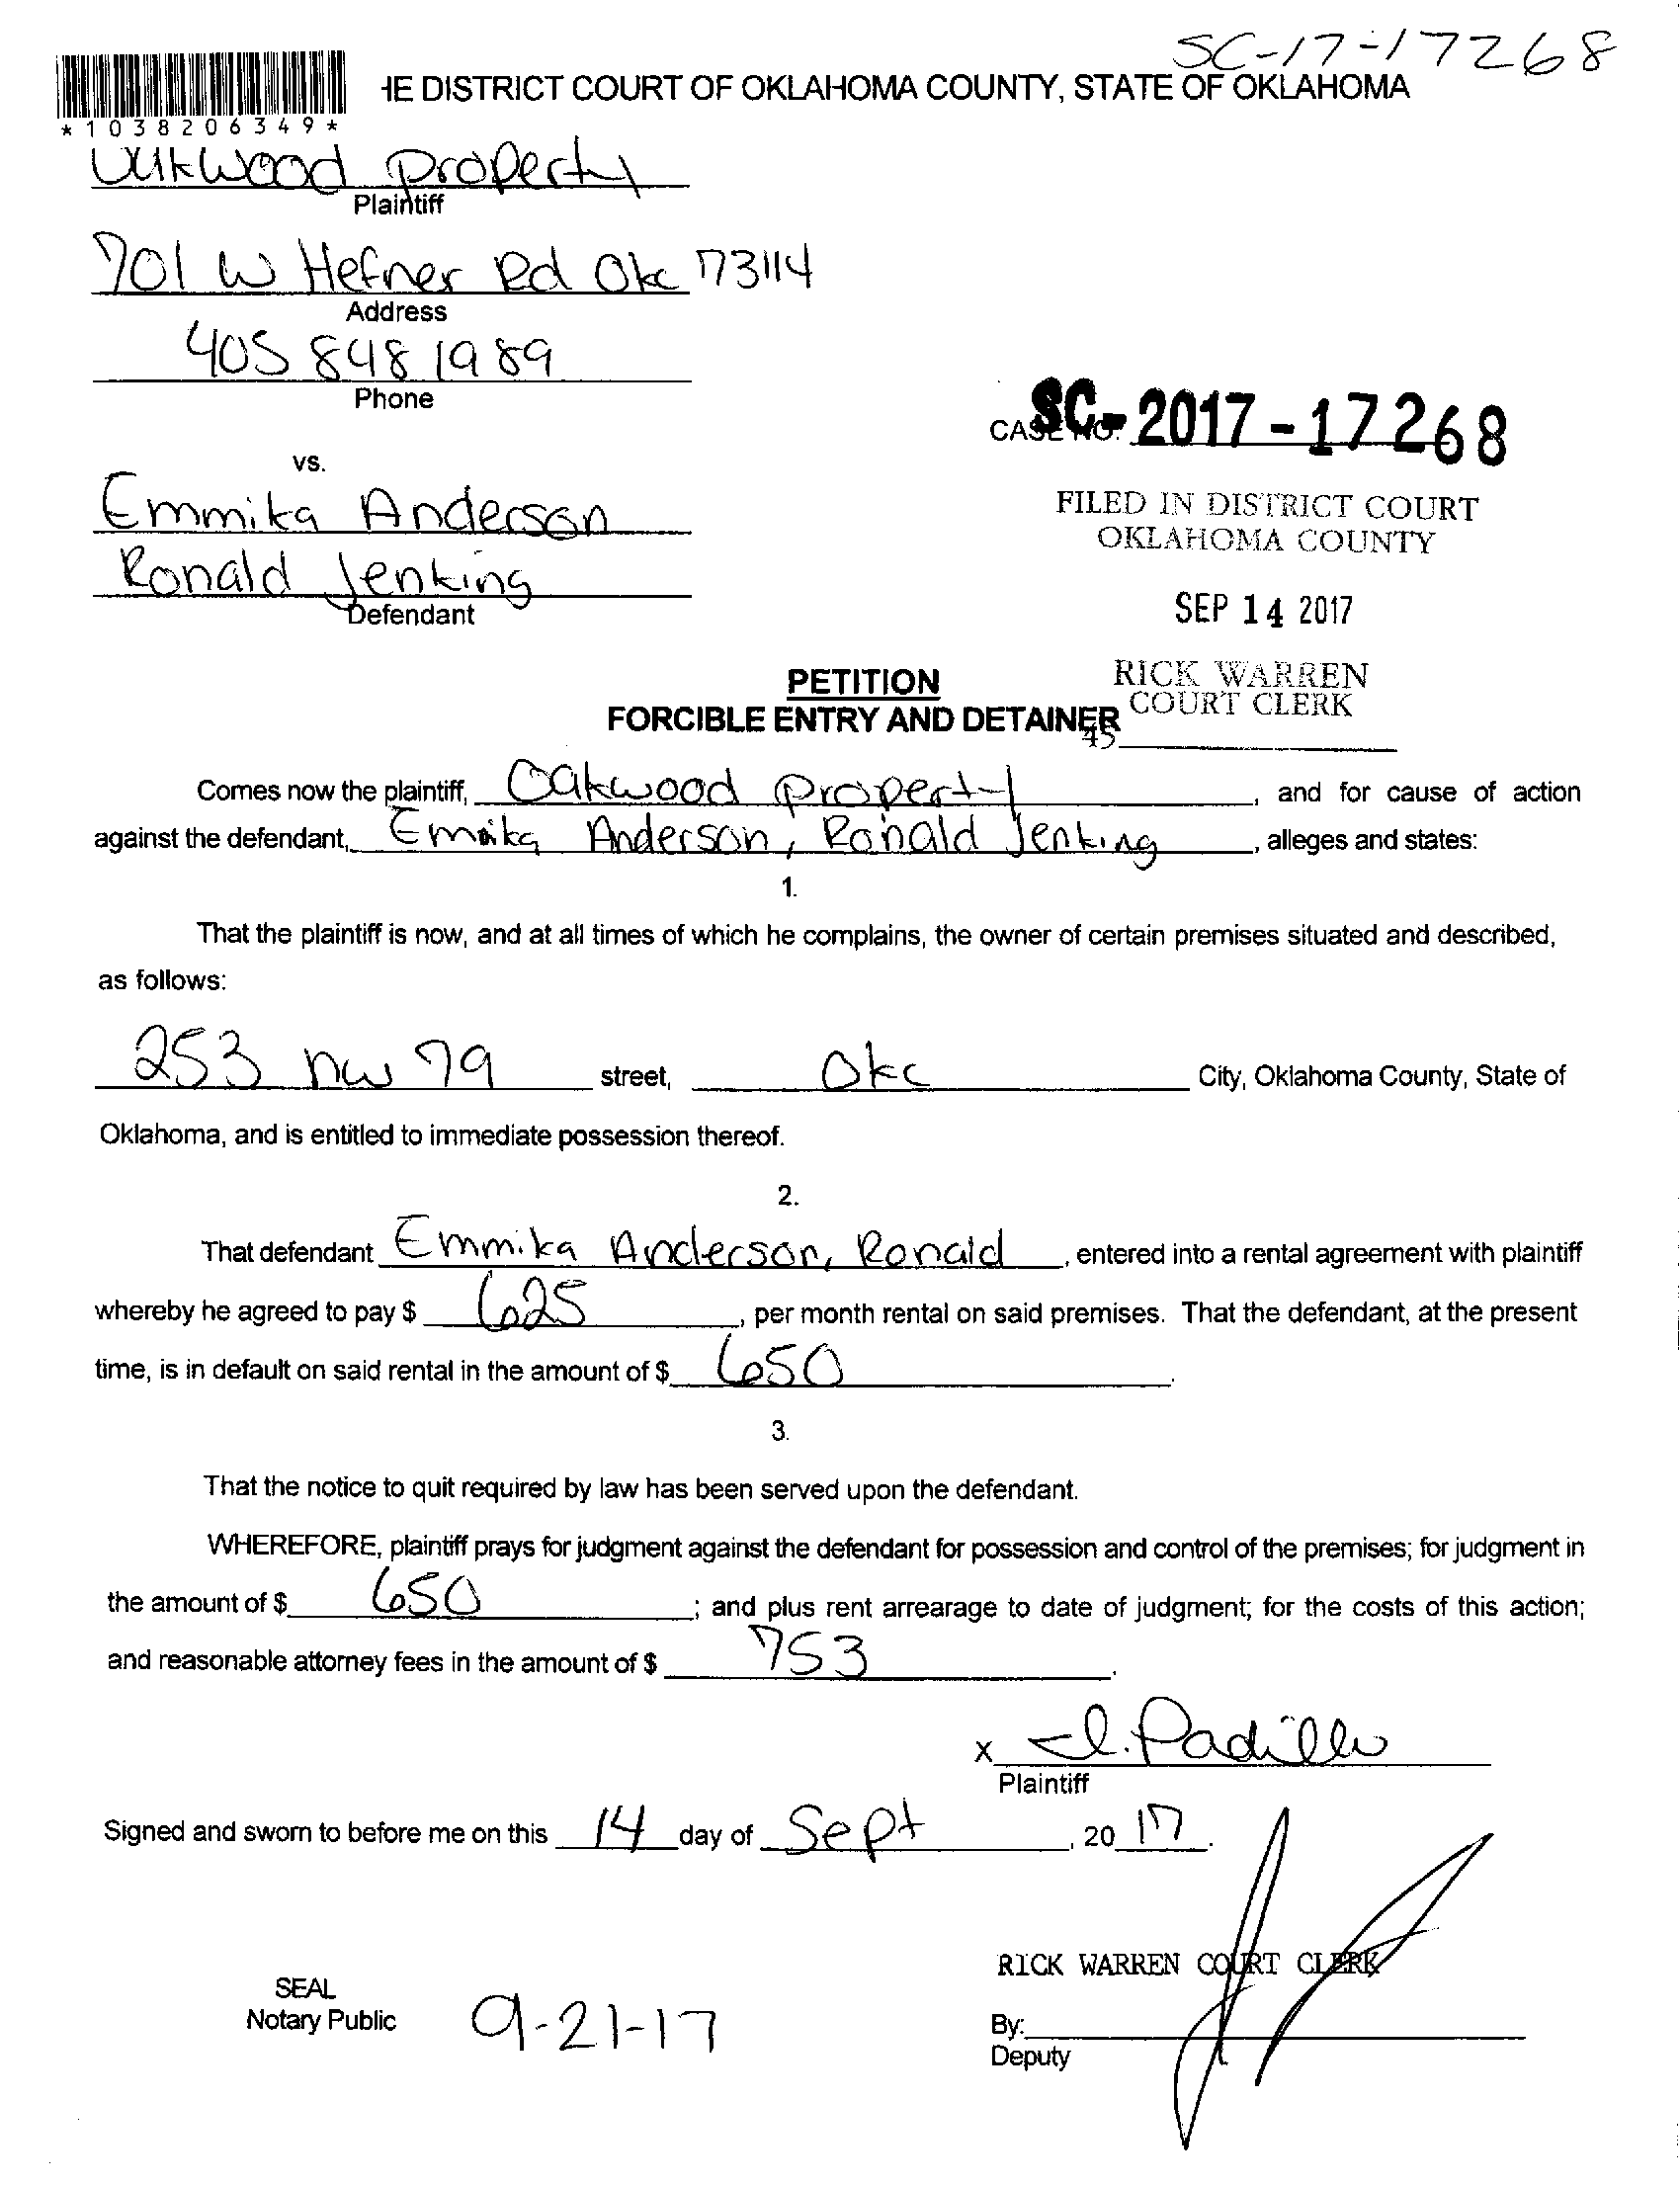 SC-17-17268
HE DISTRICT COURT OF OKLAHOMA COUNTY, STATE OF OKLAHOMA
*1038206349*
Oakwood Property
Plaintiff
701 W Hefner Rd Okc 73114
Address
405 848 1989
Phone
CASE NO. SC-2017-17268
vs.
Emmika Anderson
Ronald Jenking
Defendant
FILED IN DISTRICT COURT
OKLAHOMA COUNTY
SEP 14 2017
RICK WARREN
COURT CLERK
45
PETITION
FORCIBLE ENTRY AND DETAINER
Comes now the plaintiff, Oakwood Property, and for cause of action
against the defendant, Emmika Anderson, Ronald Jenking, alleges and states:
1.
That the plaintiff is now, and at all times of which he complains, the owner of certain premises situated and described,
as follows:
253 nw 79 street, Okc City, Oklahoma County, State of
Oklahoma, and is entitled to immediate possession thereof.
2.
That defendant Emmika Anderson, Ronald, entered into a rental agreement with plaintiff
whereby he agreed to pay $ 625, per month rental on said premises. That the defendant, at the present
time, is in default on said rental in the amount of $ 650.
3.
That the notice to quit required by law has been served upon the defendant.
WHEREFORE, plaintiff prays for judgment against the defendant for possession and control of the premises; for judgment in
the amount of $ 650; and plus rent arrearage to date of judgment; for the costs of this action;
and reasonable attorney fees in the amount of $ 753.
x I. Padilla
Plaintiff
Signed and sworn to before me on this 14 day of Sept, 20 17.
RICK WARREN COURT CLERK
SEAL
Notary Public
9-21-17
By:
Deputy